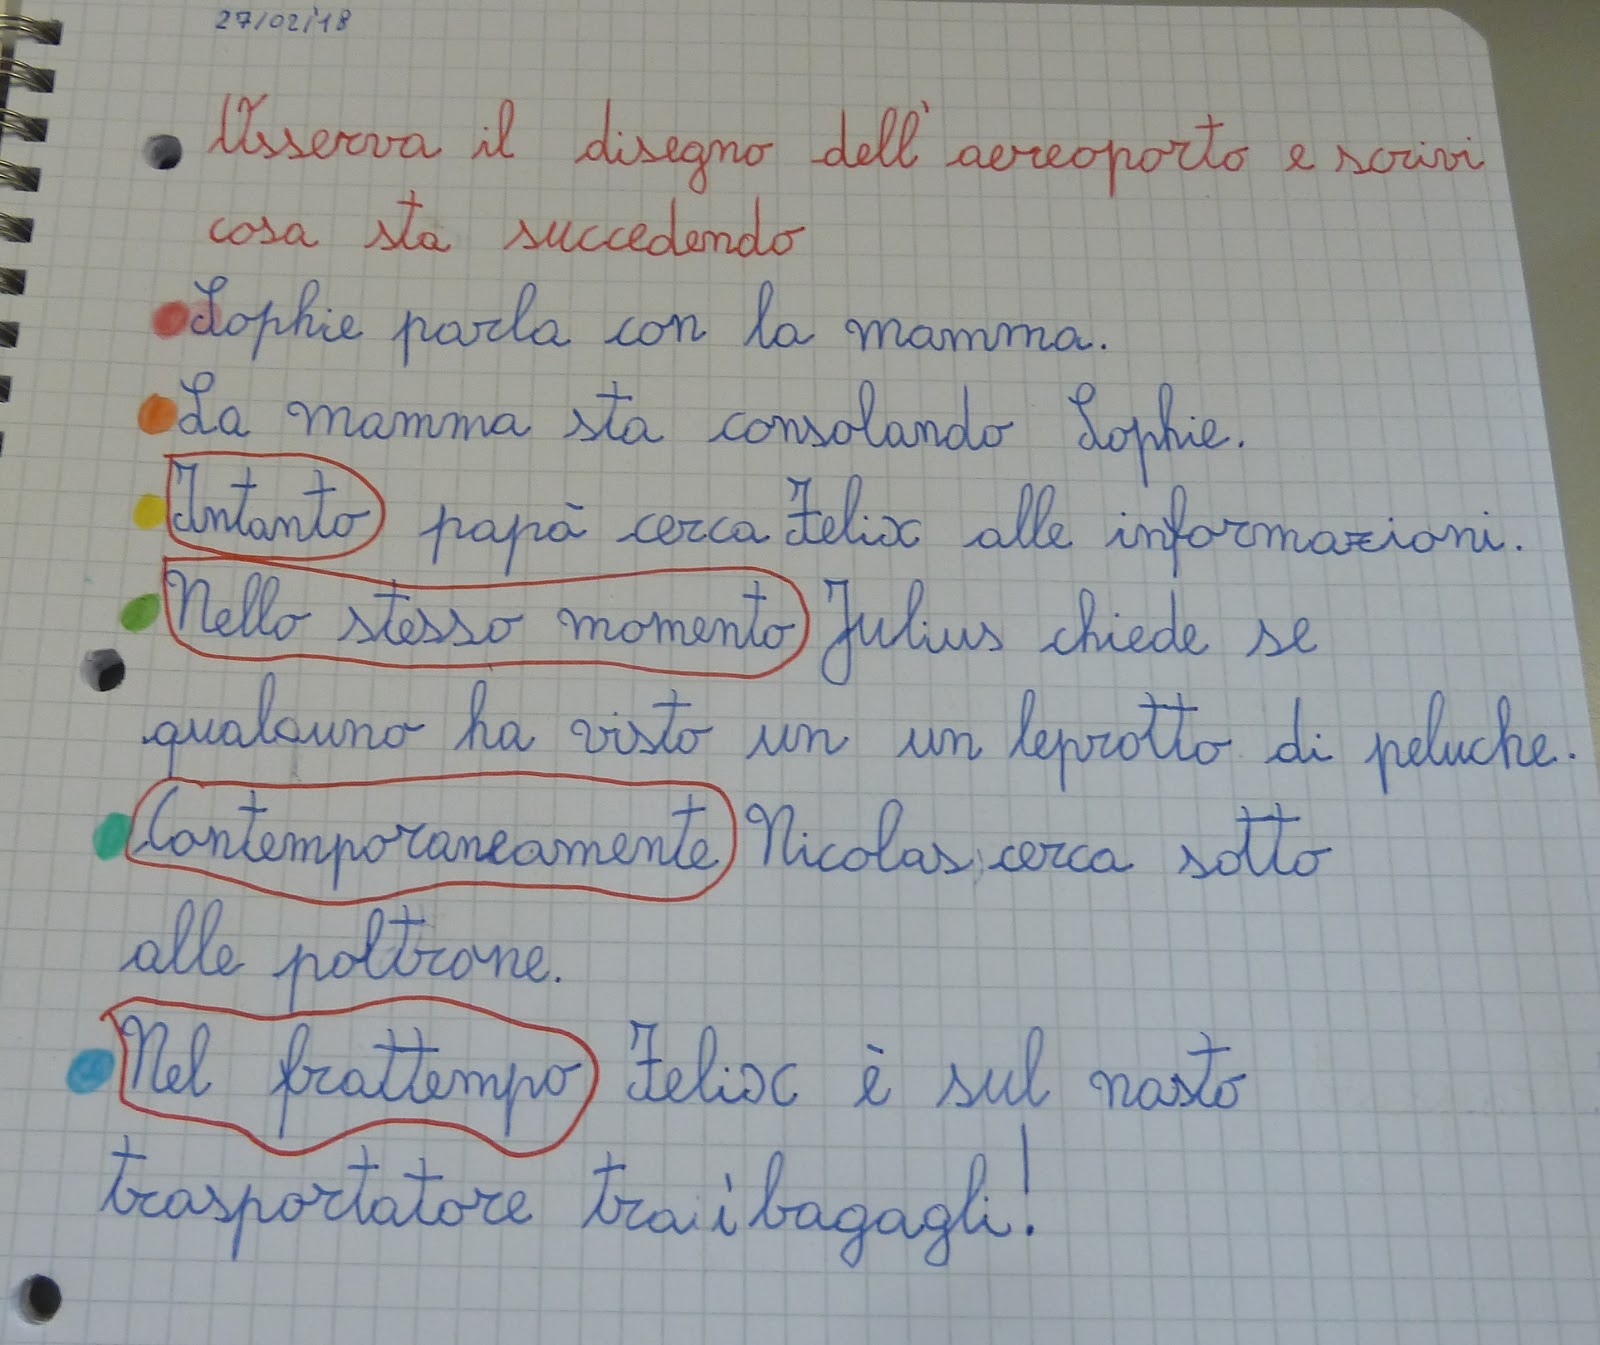 27/02/18
Osserva il disegno dell'aereoporto e scrivi
cosa sta succedendo
Sophie parla con la mamma.
La mamma sta consolando Sophie.
Intanto papà cerca Felix alle informazioni.
Nello stesso momento Julius chiede se
qualcuno ha visto un un leprotto di peluche.
Contemporaneamente Nicolas cerca sotto
alle poltrone.
Nel frattempo Felix è sul nasto
trasportatore tra i bagagli!